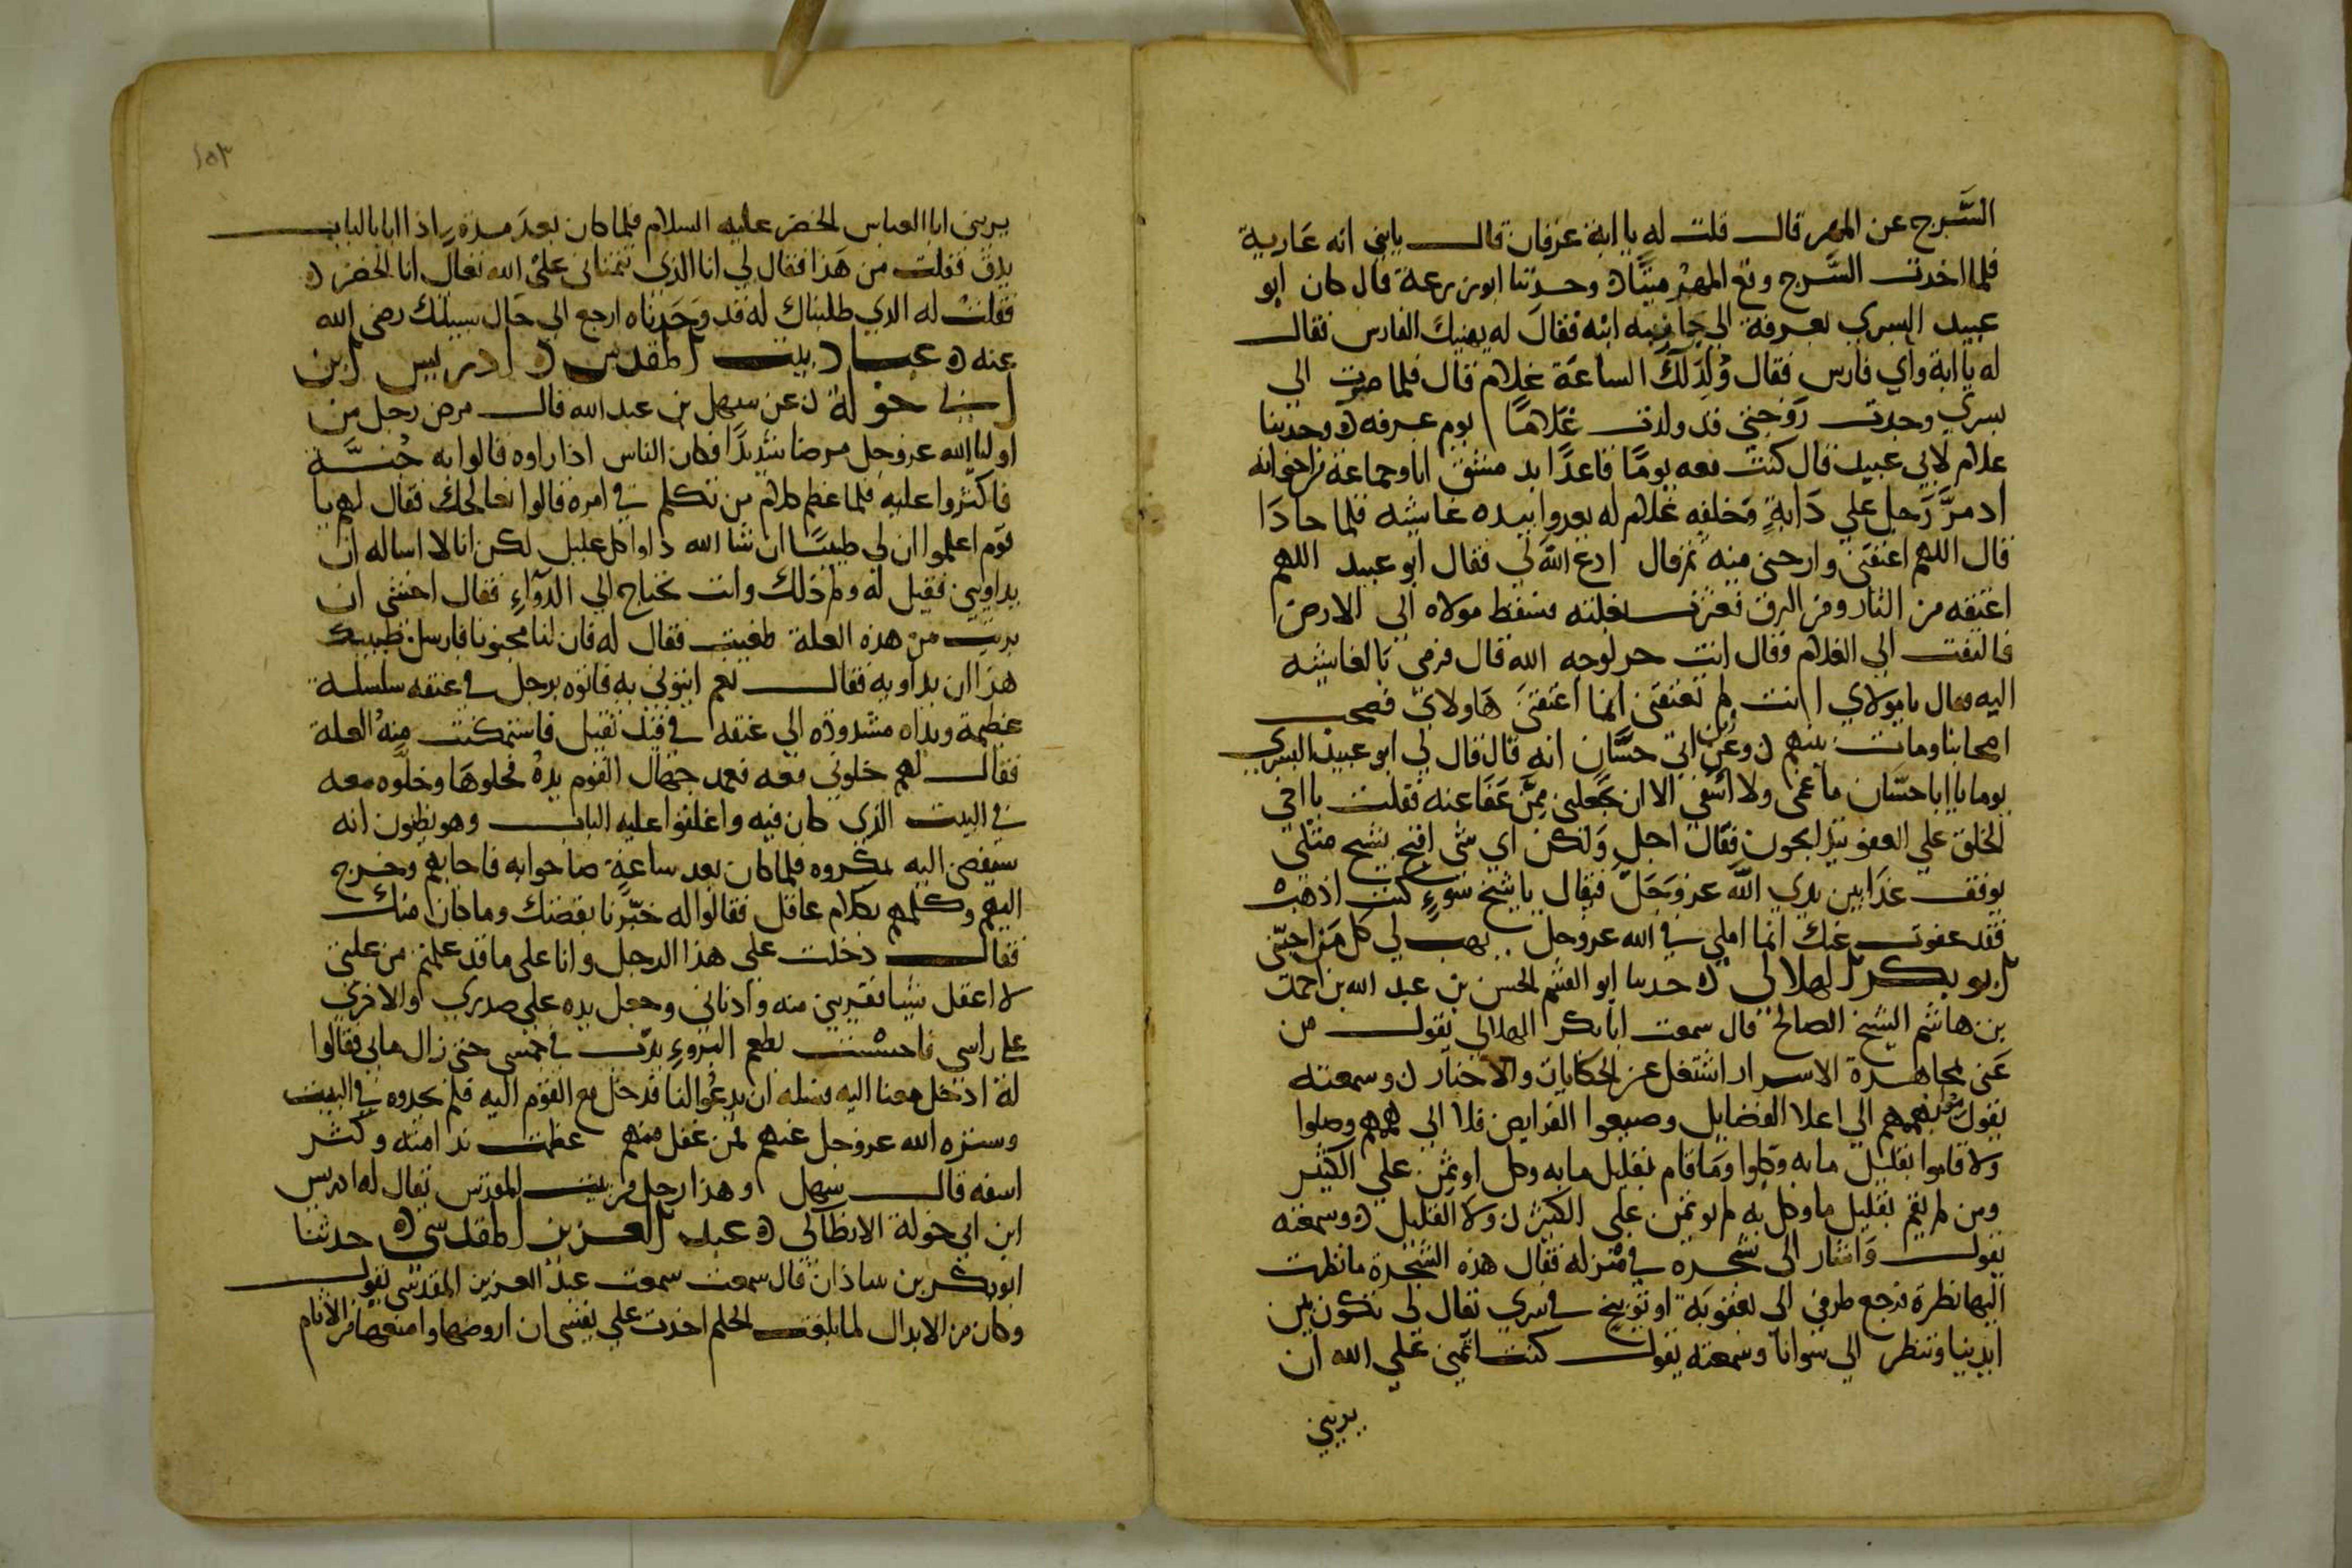 السَّرج عن المهر قال قلت له يا ابة عرفان قال يابني انه عارية
فلما اخذت السَّرج وقع المهر ميتًا وحدثنا ابو زرعة قال كان ابو
عبيد البسري بعرفة الى جانبه ابنه فقال له يهنيك الفارس فقال
له يا ابة واي فارس فقال وُلِدَ لك الساعَة غلام قال فلما صرت الى
بسري وجدت زوجتي قد ولدت غلامًا يوم عرفه وحدثنا
غلام لابي عبيد قال كنت معه يومًا قاعدًا بدمشق انا وجماعة من اخوانه
اذ مرَّ رَجل علي دَابةٍ وخلفه غلام له يعدوا بيده غاشيه فلما حاذا
قال اللهم اعتقني وارحني منه ثم قال ادع الله لي فقال ابو عبيد اللهم
اعتقه من النار ومن الرق فعثرت بغلته فسقط مولاه الى الارض
فالتفت الي الغلام وقال انت حر لوجه الله قال فرمى بالغاشيه
اليه وقال يا مولاي انت لم تعتقني انما اعتقني هاولاي فصحب
اصحابنا ومات بينهم وعن ابن ابي حسَّان انه قال قال لي ابو عبيد البسري
يوما يا ابا حسّان ما غمي ولا اسفي الا ان يجعلني ممّن عَفَا عنه فقلت يا اخي
الخلق علي العفو يتذابحون فقال اجل ولكن اي شي اقبح بشيخ مثلي
يوقف غدا بين يدي الله عز وجل فيقال يا شيخ سوءٍ كنت اذهب
فقد عفوت عنك انما املي في الله عز وجل يهب لي كل من احبّني
ابو بكر الهلالى حدثنا ابو القسم الحسن بن عبد الله بن احمد
بن هاشم الشيخ الصالح قال سمعت ابا بكر الهلالي يقول من
عَمى لمجاهدة الاسرار اشتغل عن الحكايات والاخبار وسمعته
يقول بهممهم الي اعلا الفضايل وضيعوا الفرايض فلا الى هممهم وصلوا
ولا قاموا بقليل ما به وكلوا وما قام بقليل ما به وكل اوتمن علي الكثير
ومن لم يقم بقليل ما وكل به لم يوتمن على الكثير ولا القليل وسمعته
يقول وَاشار الى شجره في منزله فقال هذه الشجرة ما نظرت
اليها نظرة فرجع طرفي الى بعقوبة او توبيخ في سري تقال لى تكون بين
ايدينا وتنظر الي سوانا وسمعته يقول كنت اتمنى علي الله ان
يريني
١٥٣
يريني ابا العباس الخضر عليه السلام فلما كان بعد مدة اذا انا بالباب
يدق فقلت من هَذا فقال لي انا الذي تتمناني علي الله تعال انا الخضر
فقلت له الذي طلبناك له قد وَجَدناه ارجع الى حَال سبيلك رضى الله
عنه عباد بيت المقدس ادريس ابن
ابي خولة عن سهل بن عبد الله قال مرض رجل من
اوليا الله عز وجل مرضا شديدًا فكان الناس اذا راوه قالوا به جُنَّة
فاكثروا عليه فلما عظم كلام من تكلم في امره قالوا نعالجك فقال لهم يا
قوم اعلموا ان لي طبيبًا ان شا الله داوا كل عليل لكن انا لا اساله ان
يداويني فقيل له ولم ذلك وانت تحتاج الي الدوآءِ فقال اخشى ان
بريت من هذه العلة طغيت فقال له فان لنا مجنونا فارسل طبيبك
هذا ان يداويه فقال نعم ايتوني به فاتوه برجل في عنقه سلسلة
عظيمة ويداه مشدوده الي عنقه في قيد ثقيل فاستمكنت منه العلة
فقال لهم خلوني معه فعمد جهال القوم يدهُ فحلوها وخلّوه معه
في البيت الذي كان فيه واغلقوا عليه الباب وهو يظنون انه
سيفضى اليه بمكروه فلما كان بعد ساعةٍ صاحوا به فاجابهم وخرج
اليهم وكلمهم بكلام عاقل فقالوا له خبّرنا بقصتك وما كان منك
فقال دخلت علي هذا الرجل وانا على ما قد علمتم من علتي
لا اعقل شيا فقربني منه وادناني وجعل يده علي صدري والاخري
علي راسي فاحسست بطعم البروءِ يدب في جسمي حتى زال ما بي فقالوا
له ادخل معنا اليه فسله ان يدعُوا لنا فدخل مع القوم اليه فلم يجدوه في البيت
وستره الله عز وجل عنهم فمن غفل منهم عظمت ندامته وكثر
اسفه قال سهل وهذا رجل من بيت المقدس يقال له ادريس
ابن ابي خولة الانطاكي عبد العزيز المقدسي حدثنا
ابو بكر بن ساذان قال سمعت سمعت عبد العزيز المقدسي يقول
وكان من الابدال لما بلغت الحلم اخذت علي نفسى ان اروضها وامنعها من الاثام